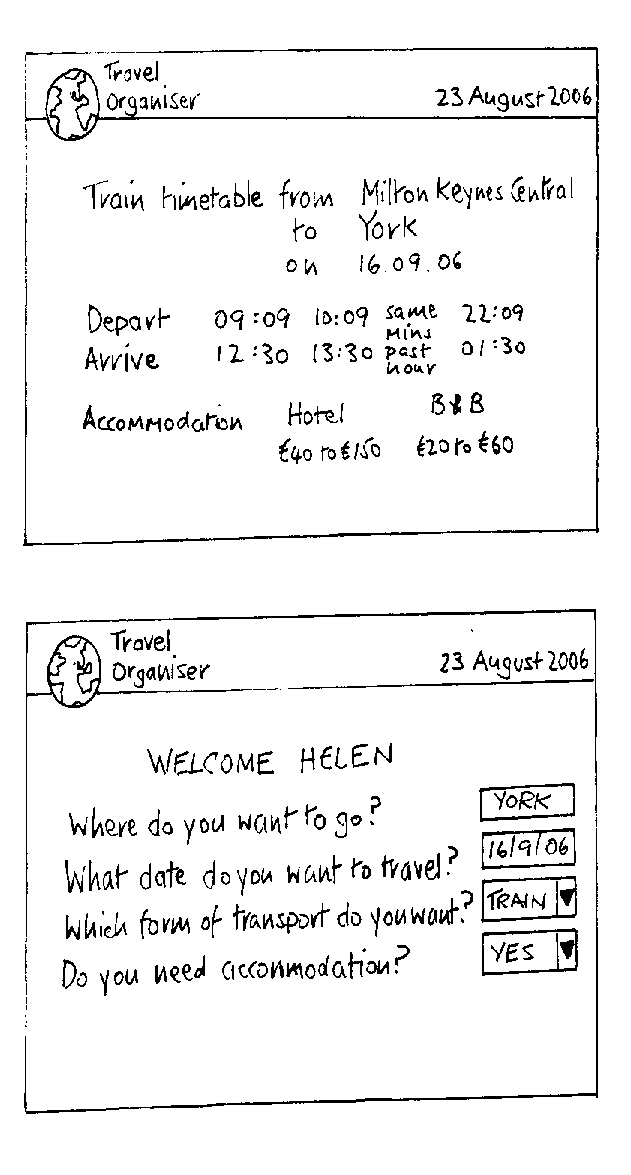 Travel
Organiser
23 August 2006
Train timetable from Milton Keynes Central
to York
on 16.09.06
Depart 09:09 10:09 same mins past hour 22:09
Arrive 12:30 13:30 01:30
Accommodation Hotel B&B
€40 to €150 €20 to €60
Travel
Organiser
23 August 2006
WELCOME HELEN
Where do you want to go? YORK
What date do you want to travel? 16/9/06
Which form of transport do you want? TRAIN
Do you need accommodation? YES